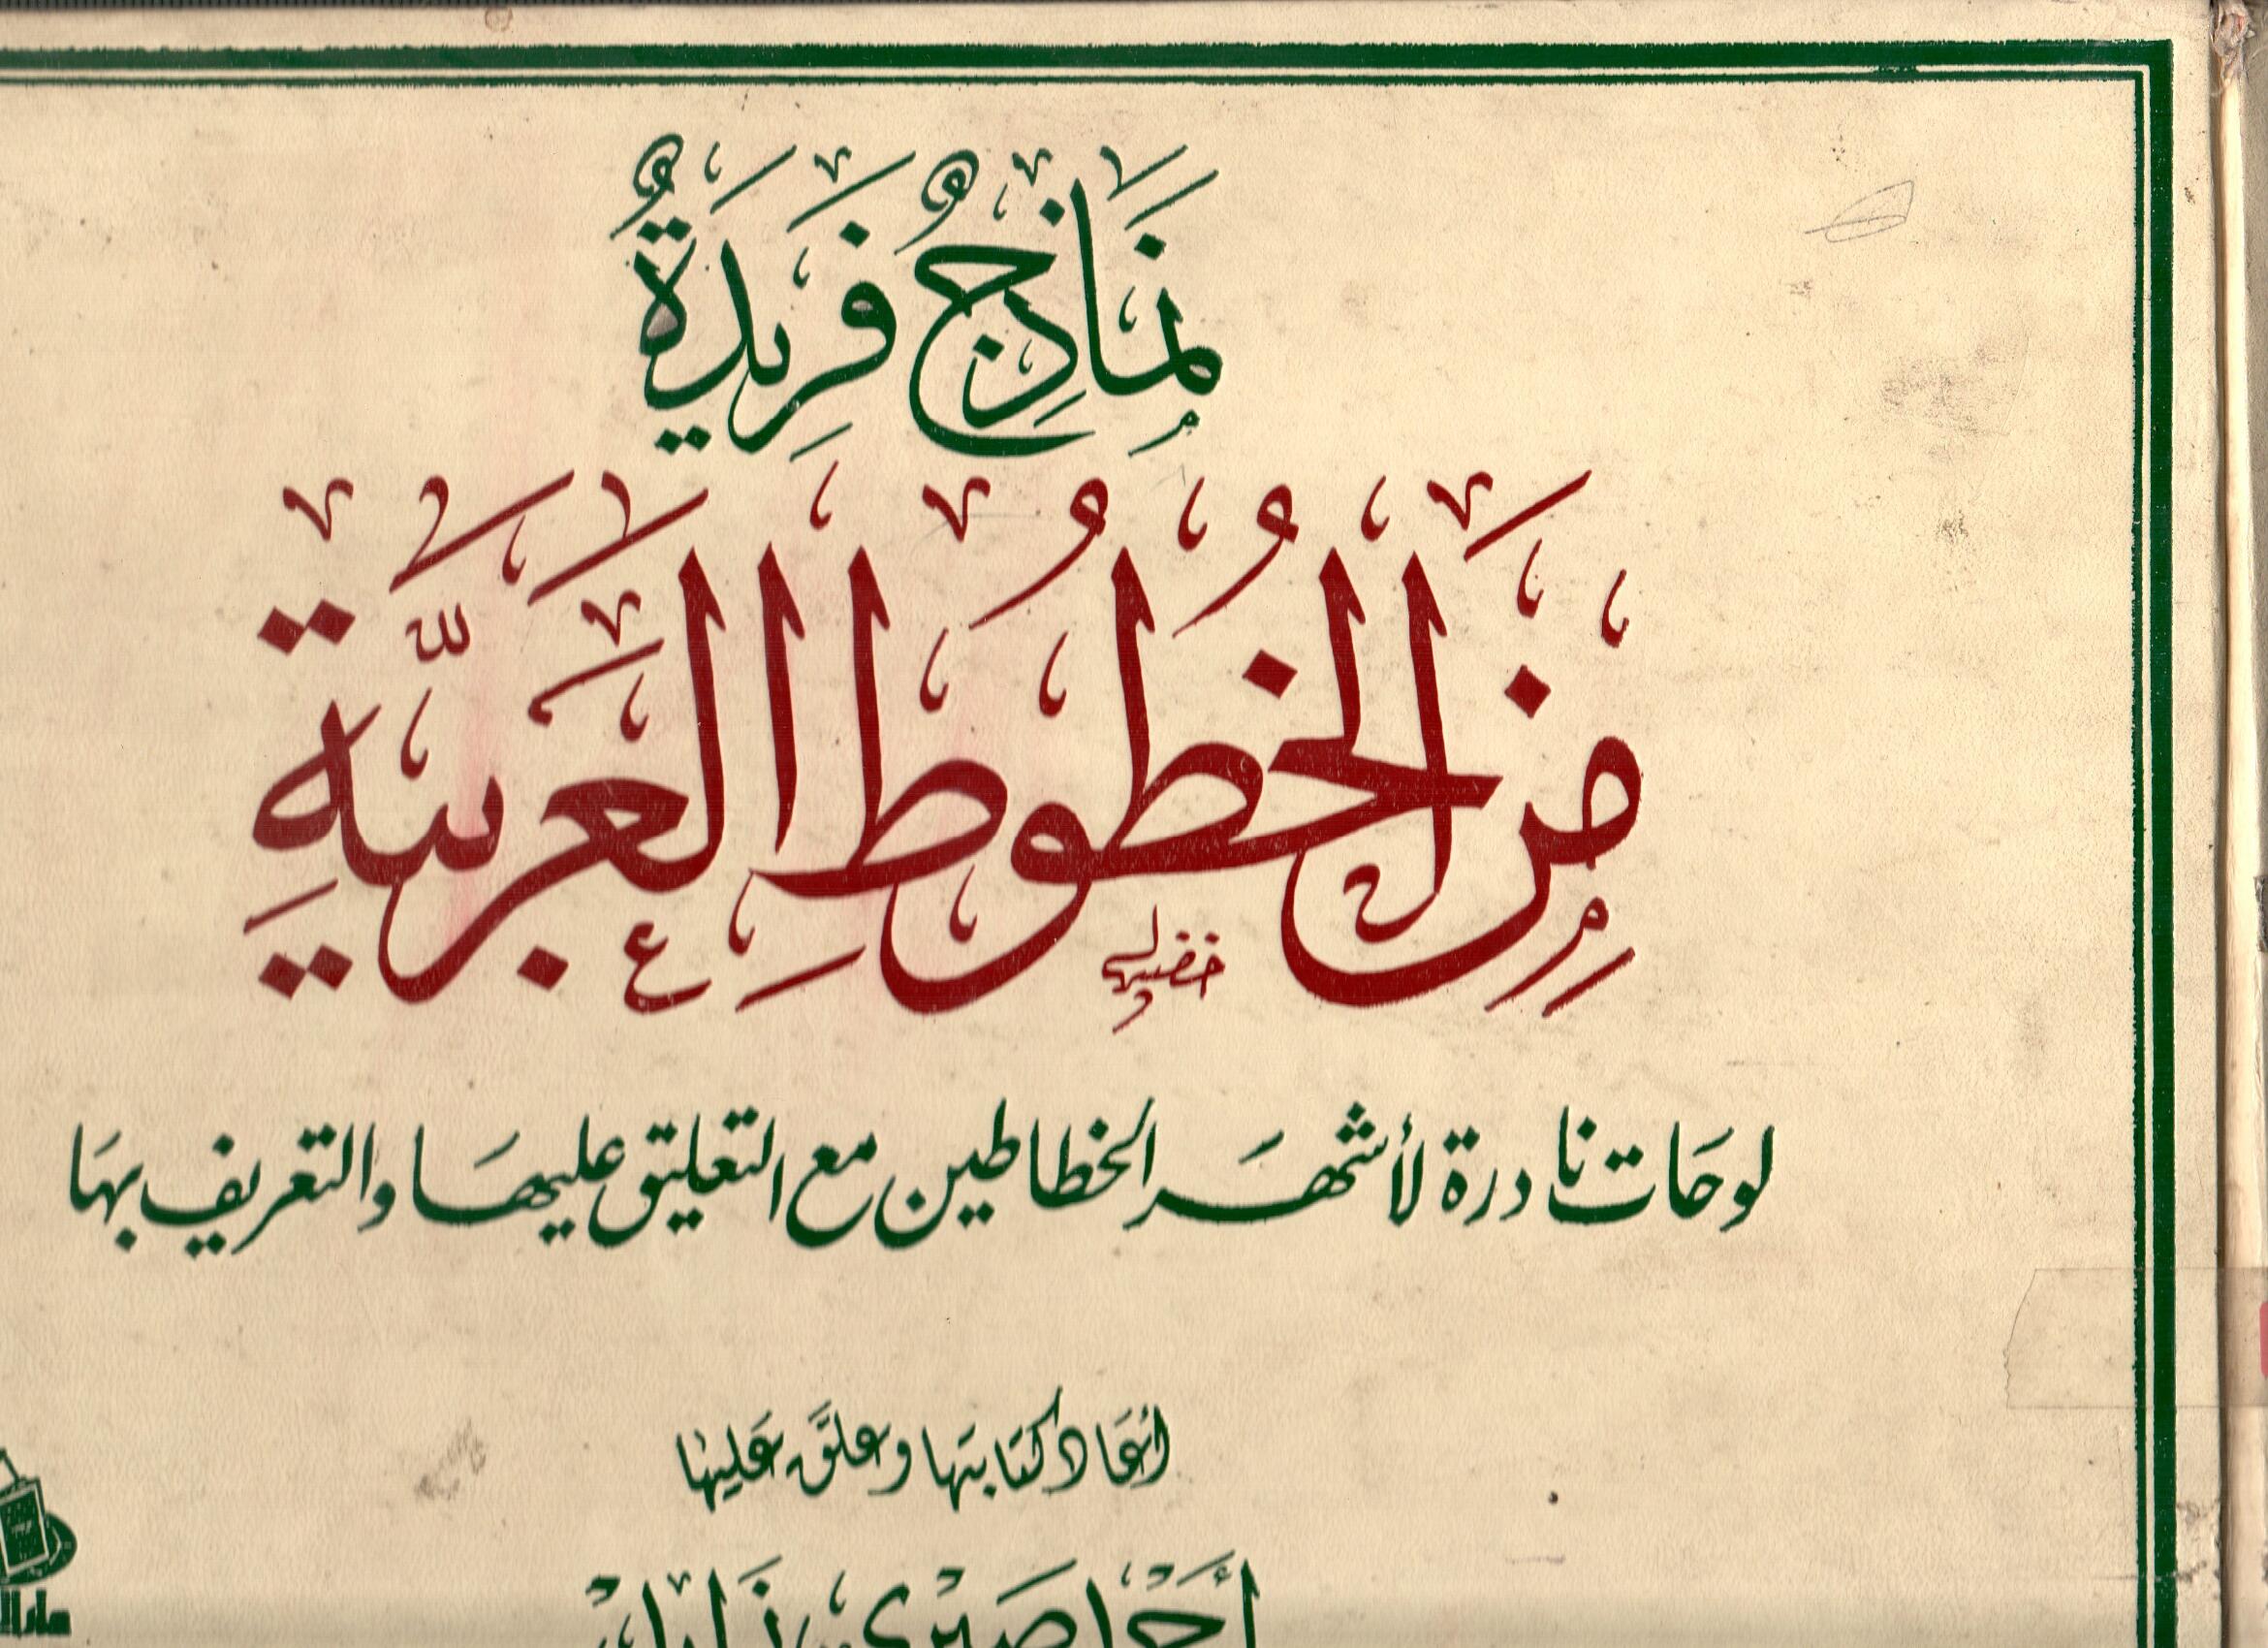 نَمَاذِجُ فَرِيدَةٌ
مِنَ الخُطُوطِ العَرَبِيَّةِ
خضير
لوحَات نادرة لأشهَر الخطاطين مع التعليق عليهَا والتعريف بهَا
أعَاد كتَابتهَا وعلَّق عَليهَا
أحمد صبري